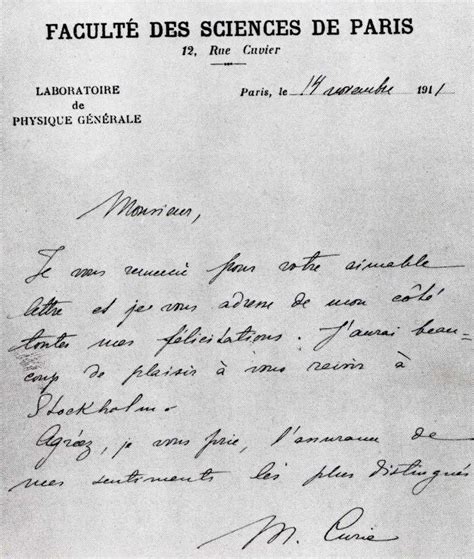 FACULTÉ DES SCIENCES DE PARIS
12, Rue Cuvier
LABORATOIRE
de
PHYSIQUE GÉNÉRALE
Paris, le 14 novembre 1911
Monsieur,
Je vous remercie pour votre aimable
lettre et je vous adresse de mon côté
toutes mes félicitations. J'aurai beau-
coup de plaisir à vous revoir à
Stockholm.
Agréez, je vous prie, l'assurance de
mes sentiments les plus distingués
M. Curie